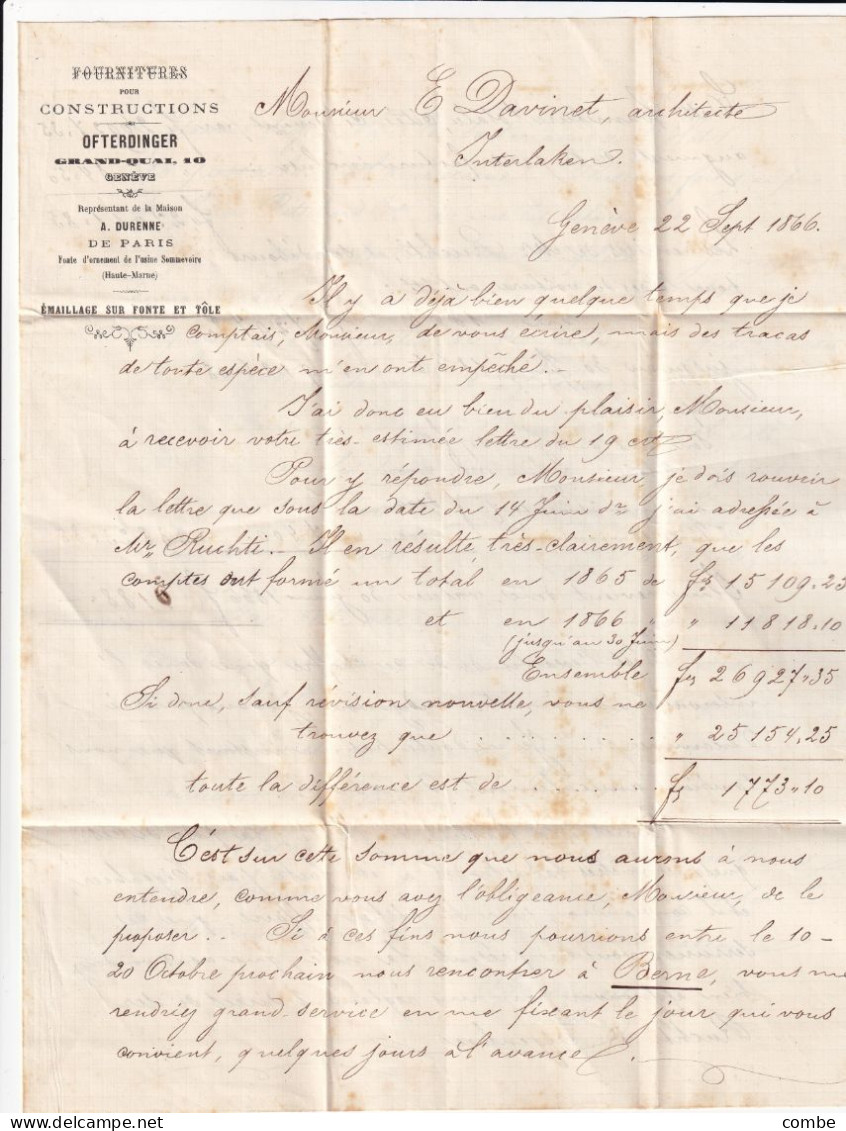 FOURNITURES
POUR
CONSTRUCTIONS
OFTERDINGER
GRAND-QUAI, 10
GENÈVE
Représentant de la Maison
A. DURENNE
DE PARIS
Fonte d'ornement de l'usine Sommevoire
(Haute-Marne)
ÉMAILLAGE SUR FONTE ET TÔLE
Monsieur E Davinet, architecte
Interlaken.
Genève 22 Sept 1866.
Il y a déjà bien quelque temps que je
comptais, Monsieur, de vous écrire, mais des tracas
de toute espèce m'en ont empêché. -
J'ai donc eu bien du plaisir, Monsieur,
à recevoir votre très-estimée lettre du 19 ct
Pour y répondre, Monsieur, je dois rouvrir
la lettre que sous la date du 14 Juin dr j'ai adressée à
Mr Ruchti. - Il en résulte, très-clairement, que les
comptes ont formé un total en 1865 de frs 15109.25
et en 1866 " " 11818.10
(jusqu'au 30 Juin)
Ensemble frs 26927.35
Si donc, sauf révision nouvelle, vous ne
trouvez que . . . . . . . . . " 25154.25
toute la différence est de . . . . . . . frs 1773.10
C'est sur cette somme que nous aurons à nous
entendre, comme vous avez l'obligeance, Monsieur, de le
proposer. - Si à ces fins nous pourrions entre le 10-
20 Octobre prochain nous rencontrer à Berne, vous me
rendriez grand-service en me fixant le jour qui vous
convient, quelques jours à l'avance.
combe